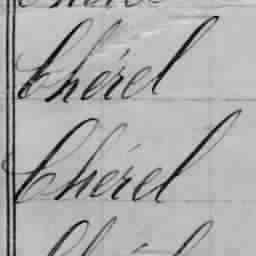 Chérel
Chérel